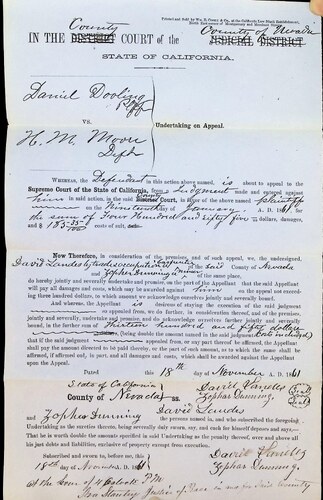 Printed and Sold by Wm. B. Cooke & Co., at the California Law Blank Establishment,
North East corner of Montgomery and Merchant Streets.
County County of Nevada
IN THE DISTRICT COURT of the JUDICIAL DISTRICT
STATE OF CALIFORNIA.
Daniel Dooling
Plff
VS. Undertaking on Appeal.
H. M. Moore
Deft
WHEREAS, the Defendant in this action above named, is about to appeal to the
Supreme Court of the State of California, from a Judgment made and entered against
him in said action, in the said County District Court, in favor of the above named plaintiff
on the Nineteenth of January A. D. 1861, for
the sum of Four Hundred and Eighty five dollars, damages,
and $185 costs of suit,
Now Therefore, In consideration of the premises, and of such appeal, we, the undersigned,
David Landes by trade & occupation a Carpenter of the said County of Nevada
and Zophar Dunning of the same place,
do hereby jointly and severally undertake and promise, on the part of the Appellant that the said Appellant
will pay all damages and costs, which may be awarded against him on the appeal not exceeding
three hundred dollars, to which amount we acknowledge ourselves jointly and severally bound.
And whereas, the Appellant is desirous of staying the execution of the said judgment
so appealed from, we do further, in consideration thereof, and of the premises,
jointly and severally, undertake and promise, and do acknowledge ourselves further jointly and severally
bound, in the further sum of Thirteen hundred and fifty dollars
(being double the amount named in the said judgment, Costs included)
that if the said judgment appealed from, or any part thereof be affirmed, the Appellant
shall pay the amount directed to be paid thereby, or the part of such amount, as to which the same shall be
affirmed, if affirmed only in part, and all damages and costs, which shall be awarded against the Appellant
upon the Appeal.
Dated this 18th day of November A. D. 1861
State of California David Landes
County of Nevada ss Zophar Dunning.
David Landes
and Zophar Dunning the persons named in, and who subscribed the foregoing
Undertaking as the sureties thereto, being severally duly sworn, say, each for himself deposes and says,
That he is worth double the amounts specified in said Undertaking as the penalty thereof, over and above all
his just debts and liabilities, exclusive of property exempt from execution.
Subscribed and sworn to, before me, this David Landes
18th day of November A. D. 1861 Zophar Dunning.
at the hour of 4 O'clock P.M.
Justice of Peace in and for said County